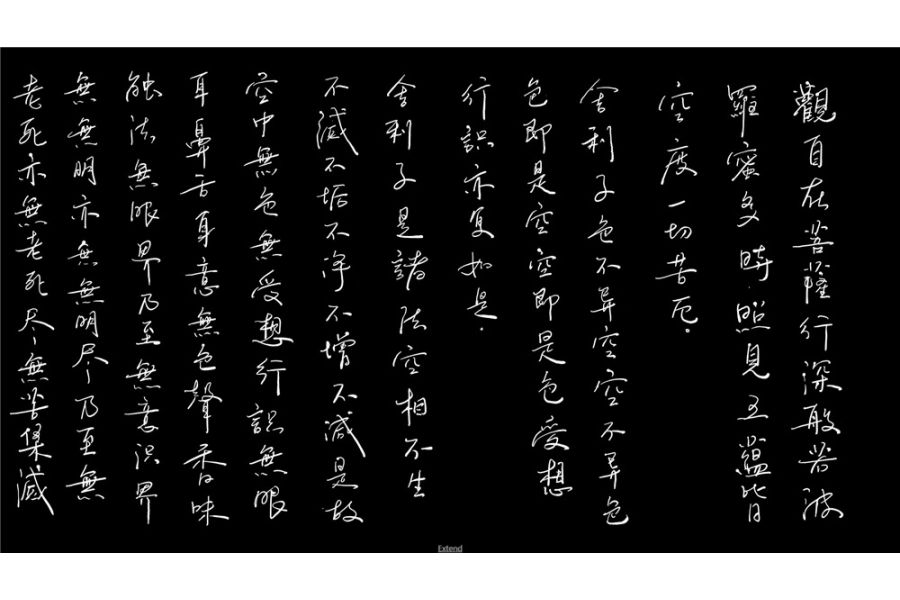 觀自在菩薩行深般若波
羅蜜多時.照見五蘊皆
空度一切苦厄.
舍利子色不异空空不异色
色即是空空即是色受想
行識亦复如是.
舍利子是諸法空相不生
不滅不垢不净不增不减是故
空中無色無受想行識無眼
耳鼻舌身意無色聲香味
触法無眼界乃至無意识界
無無明亦無無明尽乃至無
老死亦無老死尽無苦集滅
Extend